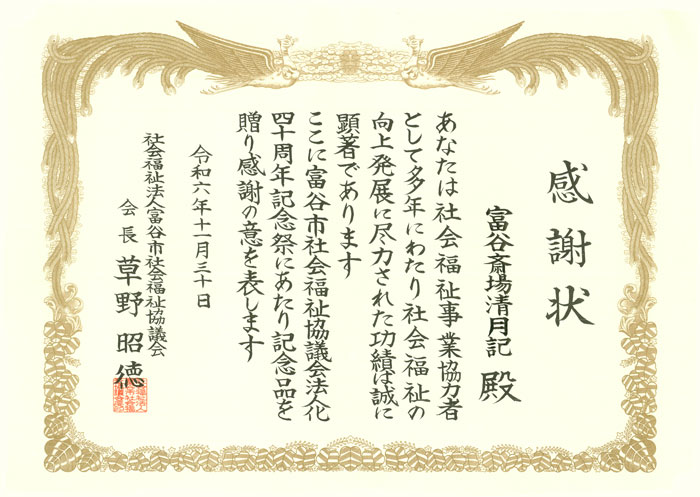 感謝状
富谷斎場清月記 殿
あなたは社会福祉事業協力者
として多年にわたり社会福祉の
向上発展に尽力された功績は誠に
顕著であります
ここに富谷市社会福祉協議会法人化
四十周年記念祭にあたり記念品を
贈り感謝の意を表します
令和六年十一月三十日
社会福祉法人富谷市社会福祉協議会
会長 草野 昭徳